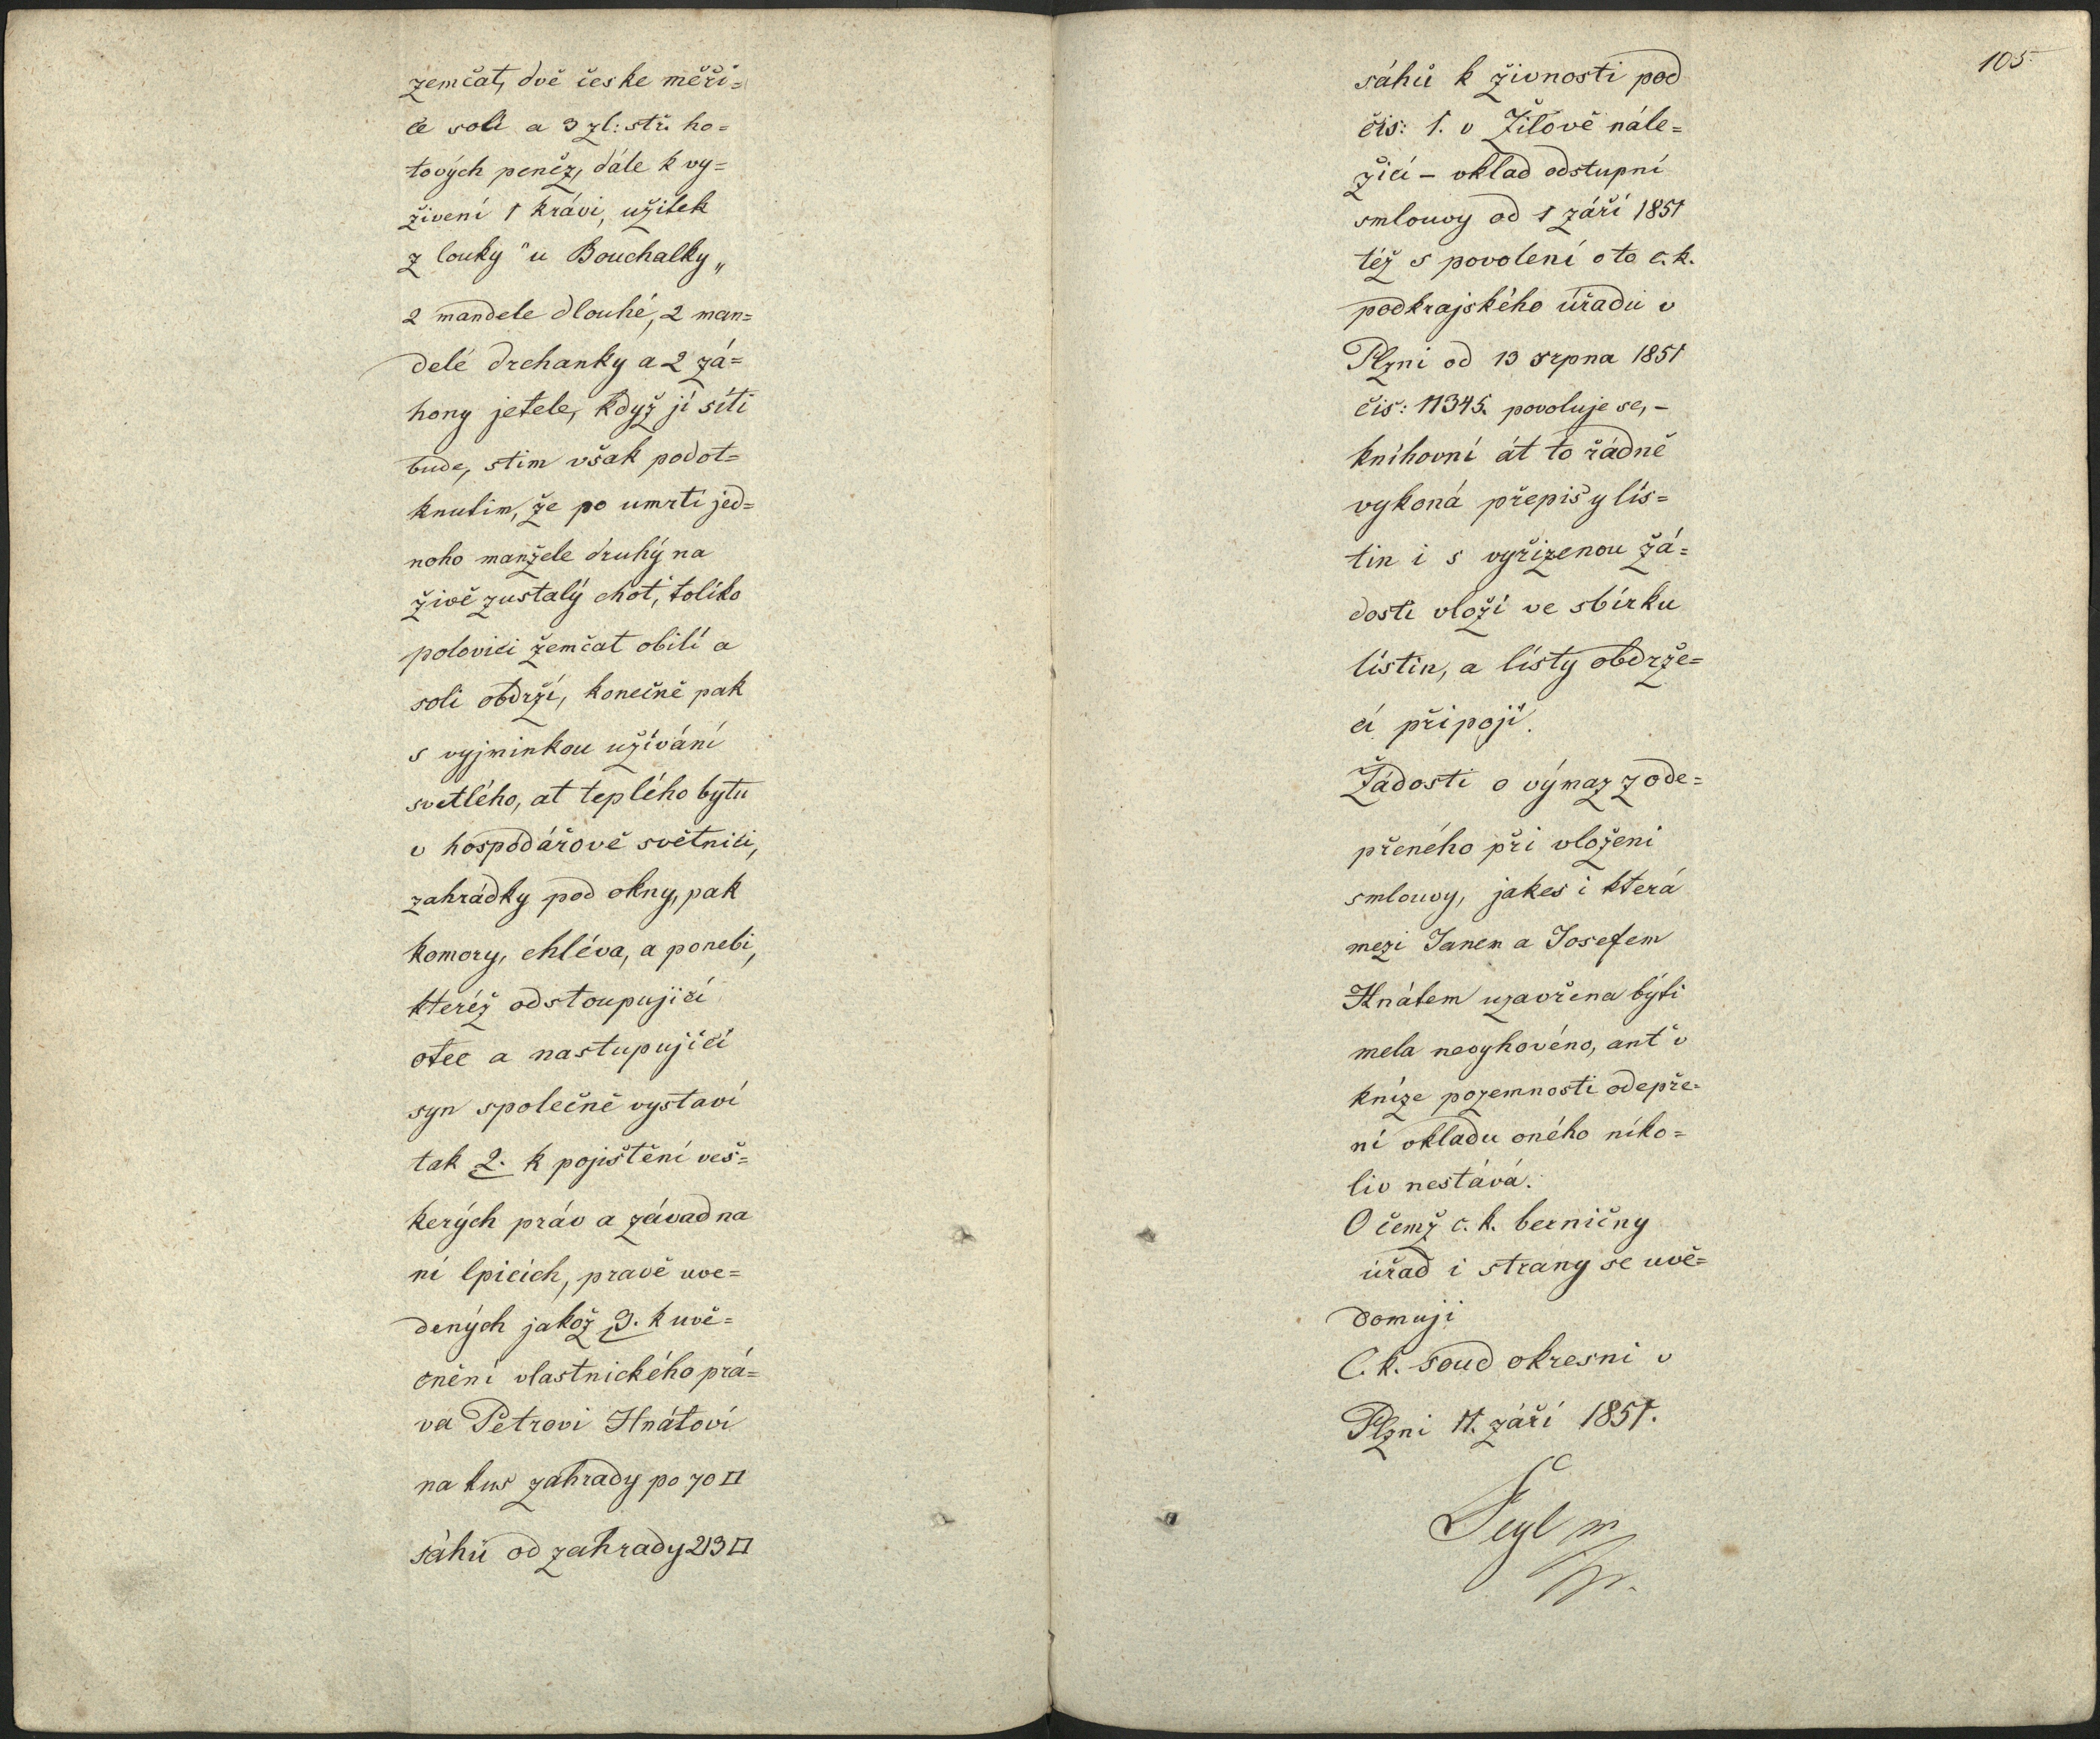 zemčat, dvě česke měři=
ce soli a 3 zl: stř. ho=
tových peněz, dále k vy=
živení 1 krávi, užitek
z louky "u Bouchalky„
2 mandele dlouhé, 2 man=
delé drchanky a 2 zá=
hony jetele, když jí síti
bude, stim však podot=
knutim, že po umrtí jed=
noho manžele druhý na
živě zustalý choť, toliko
polovici žemčat obilí a
soli obdrží, konečně pak
s vyjminkou užívání
svetlého, at teplého bytu
v hospodářově světnici,
zahrádky pod okny, pak
komory, chléva, a ponebi,
kteréž odstoupujicí
otec a nastupujicí
syn společně vystaví
tak 2. k pojištění veš=
kerých práv a závad na
ní lpicích, pravě uve=
dených jakož 3. k uvě=
cnění vlastnického prá=
va Petrovi Hnátoví
na kus zahrady po 70 □
sáhů od zahrady 213 □
105.
sáhů k živnosti pod
čis: 1. v Žilově nále=
žicí – vklad odstupní
smlouvy od 1 září 1851
též s povolení oto c. k.
podkrajského úřadu v
Plzni od 13 srpna 1851
čis: 11345. povoluje se, –
knihovní át to řádně
vykoná přepisy lis=
tin i s vyřizenou žá=
dosti vloží ve sbírku
listin, a listy obdrže=
cí připojí.
Žádosti o výmaz zode=
přeného při vloženi
smlouvy, jakes i která
mezi Janem a Josefem
Hnátem uzavřena býti
mela nevyhověno, anť v
knize pozemnosti odepře=
ní vkladu oného niko=
liv nestává.
O čemž c. k. berničny
úřad i strany se uvě=
domuji
C. k. soud okresni v
Plzni 11. září 1851.